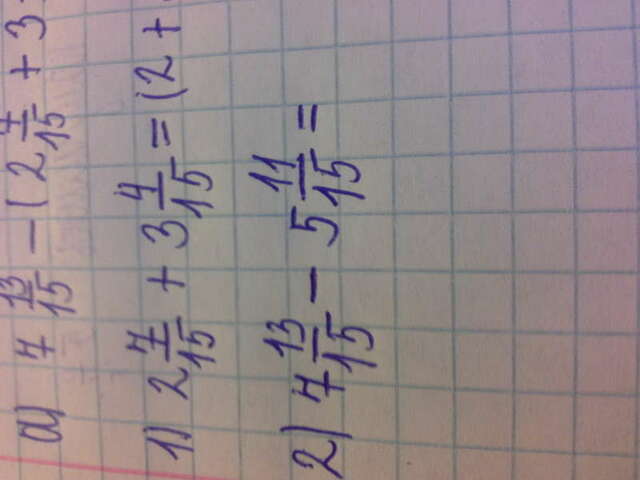 а) 7 13/15 − (2 7/15 + 3
1) 2 7/15 + 3 4/15 = (2 +
2) 7 13/15 − 5 11/15 =